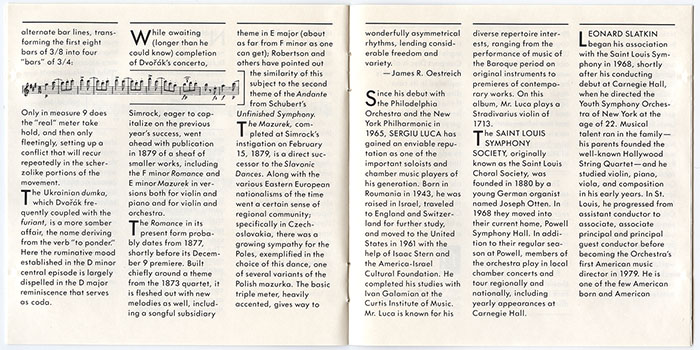 alternate bar lines, trans-
forming the first eight
bars of 3/8 into four
"bars" of 3/4:
Only in measure 9 does
the "real" meter take
hold, and then only
fleetingly, setting up a
conflict that will recur
repeatedly in the scher-
zolike portions of the
movement.
The Ukrainian dumka,
which Dvořák fre-
quently coupled with the
furiant, is a more somber
affair, the name deriving
from the verb "to ponder."
Here the ruminative mood
established in the D minor
central episode is largely
dispelled in the D major
reminiscence that serves
as coda.
While awaiting
(longer than he
could know) completion
of Dvořák's concerto,
Simrock, eager to cap-
italize on the previous
year's success, went
ahead with publication
in 1879 of a sheaf of
smaller works, including
the F minor Romance and
E minor Mazurek in ver-
sions both for violin and
piano and for violin and
orchestra.
The Romance in its
present form proba-
bly dates from 1877,
shortly before its Decem-
ber 9 premiere. Built
chiefly around a theme
from the 1873 quartet, it
is fleshed out with new
melodies as well, includ-
ing a songful subsidiary
theme in E major (about
as far from F minor as one
can get); Robertson and
others have pointed out
the similarity of this
subject to the second
theme of the Andante
from Schubert's
Unfinished Symphony.
The Mazurek, com-
pleted at Simrock's
instigation on February
15, 1879, is a direct suc-
cessor to the Slavonic
Dances. Along with the
various Eastern European
nationalisms of the time
went a certain sense of
regional community;
specifically in Czech-
oslovakia, there was a
growing sympathy for the
Poles, exemplified in the
choice of this dance, one
of several variants of the
Polish mazurka. The basic
triple meter, heavily
accented, gives way to
wonderfully asymmetrical
rhythms, lending consid-
erable freedom and
variety.
— James R. Oestreich
Since his debut with
the Philadelphia
Orchestra and the New
York Philharmonic in
1965, SERGIU LUCA has
gained an enviable repu-
tation as one of the
important soloists and
chamber music players of
his generation. Born in
Roumania in 1943, he was
raised in Israel, traveled
to England and Switzer-
land for further study,
and moved to the United
States in 1961 with the
help of Isaac Stern and
the America-Israel
Cultural Foundation. He
completed his studies with
Ivan Galamian at the
Curtis Institute of Music.
Mr. Luca is known for his
diverse repertoire inter-
ests, ranging from the
performance of music of
the Baroque period on
original instruments to
premieres of contempo-
rary works. On this
album, Mr. Luca plays a
Stradivarius violin of
1713.
The SAINT LOUIS
SYMPHONY
SOCIETY, originally
known as the Saint Louis
Choral Society, was
founded in 1880 by a
young German organist
named Joseph Otten. In
1968 they moved into
their current home, Powell
Symphony Hall. In addi-
tion to their regular sea-
son at Powell, members of
the orchestra play in local
chamber concerts and
tour regionally and
nationally, including
yearly appearances at
Carnegie Hall.
LEONARD SLATKIN
began his association
with the Saint Louis Sym-
phony in 1968, shortly
after his conducting
debut at Carnegie Hall,
when he directed the
Youth Symphony Orches-
tra of New York at the
age of 22. Musical
talent ran in the family—
his parents founded the
well-known Hollywood
String Quartet—and he
studied violin, piano,
viola, and composition
in his early years. In St.
Louis, he progressed from
assistant conductor to
associate, associate
principal and principal
guest conductor before
becoming the Orchestra's
first American music
director in 1979. He is
one of the few American
born and American